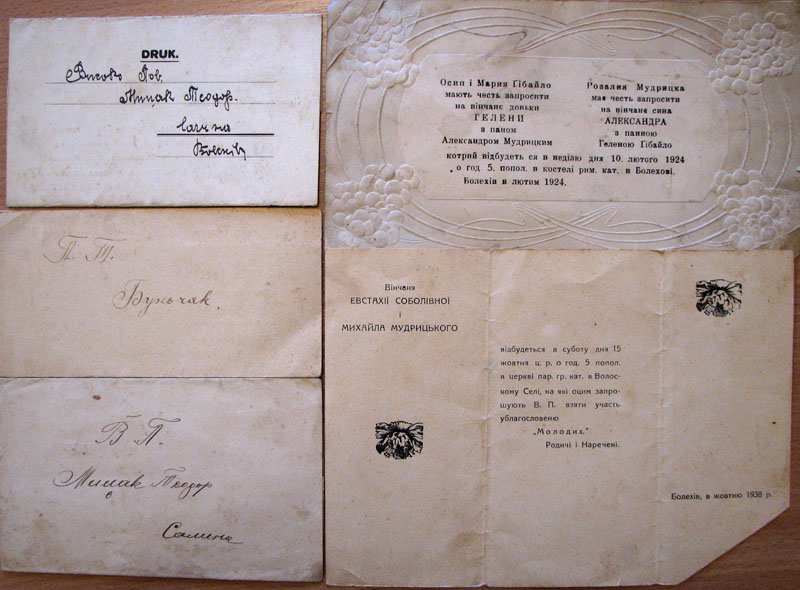 DRUK.
Високо Пов.
Милак Теодор.
П. Т.
Буньчак.
В. П.
Милак Теодор
Салина
Осип і Мария Ґібайло
мають честь запросити
на вінчанє доньки
ГЕЛЕНИ
з паном
Александром Мудрицким
Розалия Мудрицка
має честь запросити
на вінчанє сина
АЛЕКСАНДРА
з панною
Геленою Ґібайло
котрий відбудеть ся в неділю дня 10. лютого 1924
о год 5. попол. в костелі рим. кат. в Болехові.
Болехів в лютим 1924.
Вінчаня
ЕВСТАХІЇ СОБОЛІВНОЇ
і
МИХАЙЛА МУДРИЦЬКОГО
відбудеться в суботу дня 15
жовтня ц. р. о год. 5 попол.
в церкві пар. гр. кат. в Волос-
кому Селі, на які оцим запро-
шують В. П. взяти участь
ублагословеню
„Молодих."
Родичі і Наречені.
Болехів, в жовтню 1938 р.